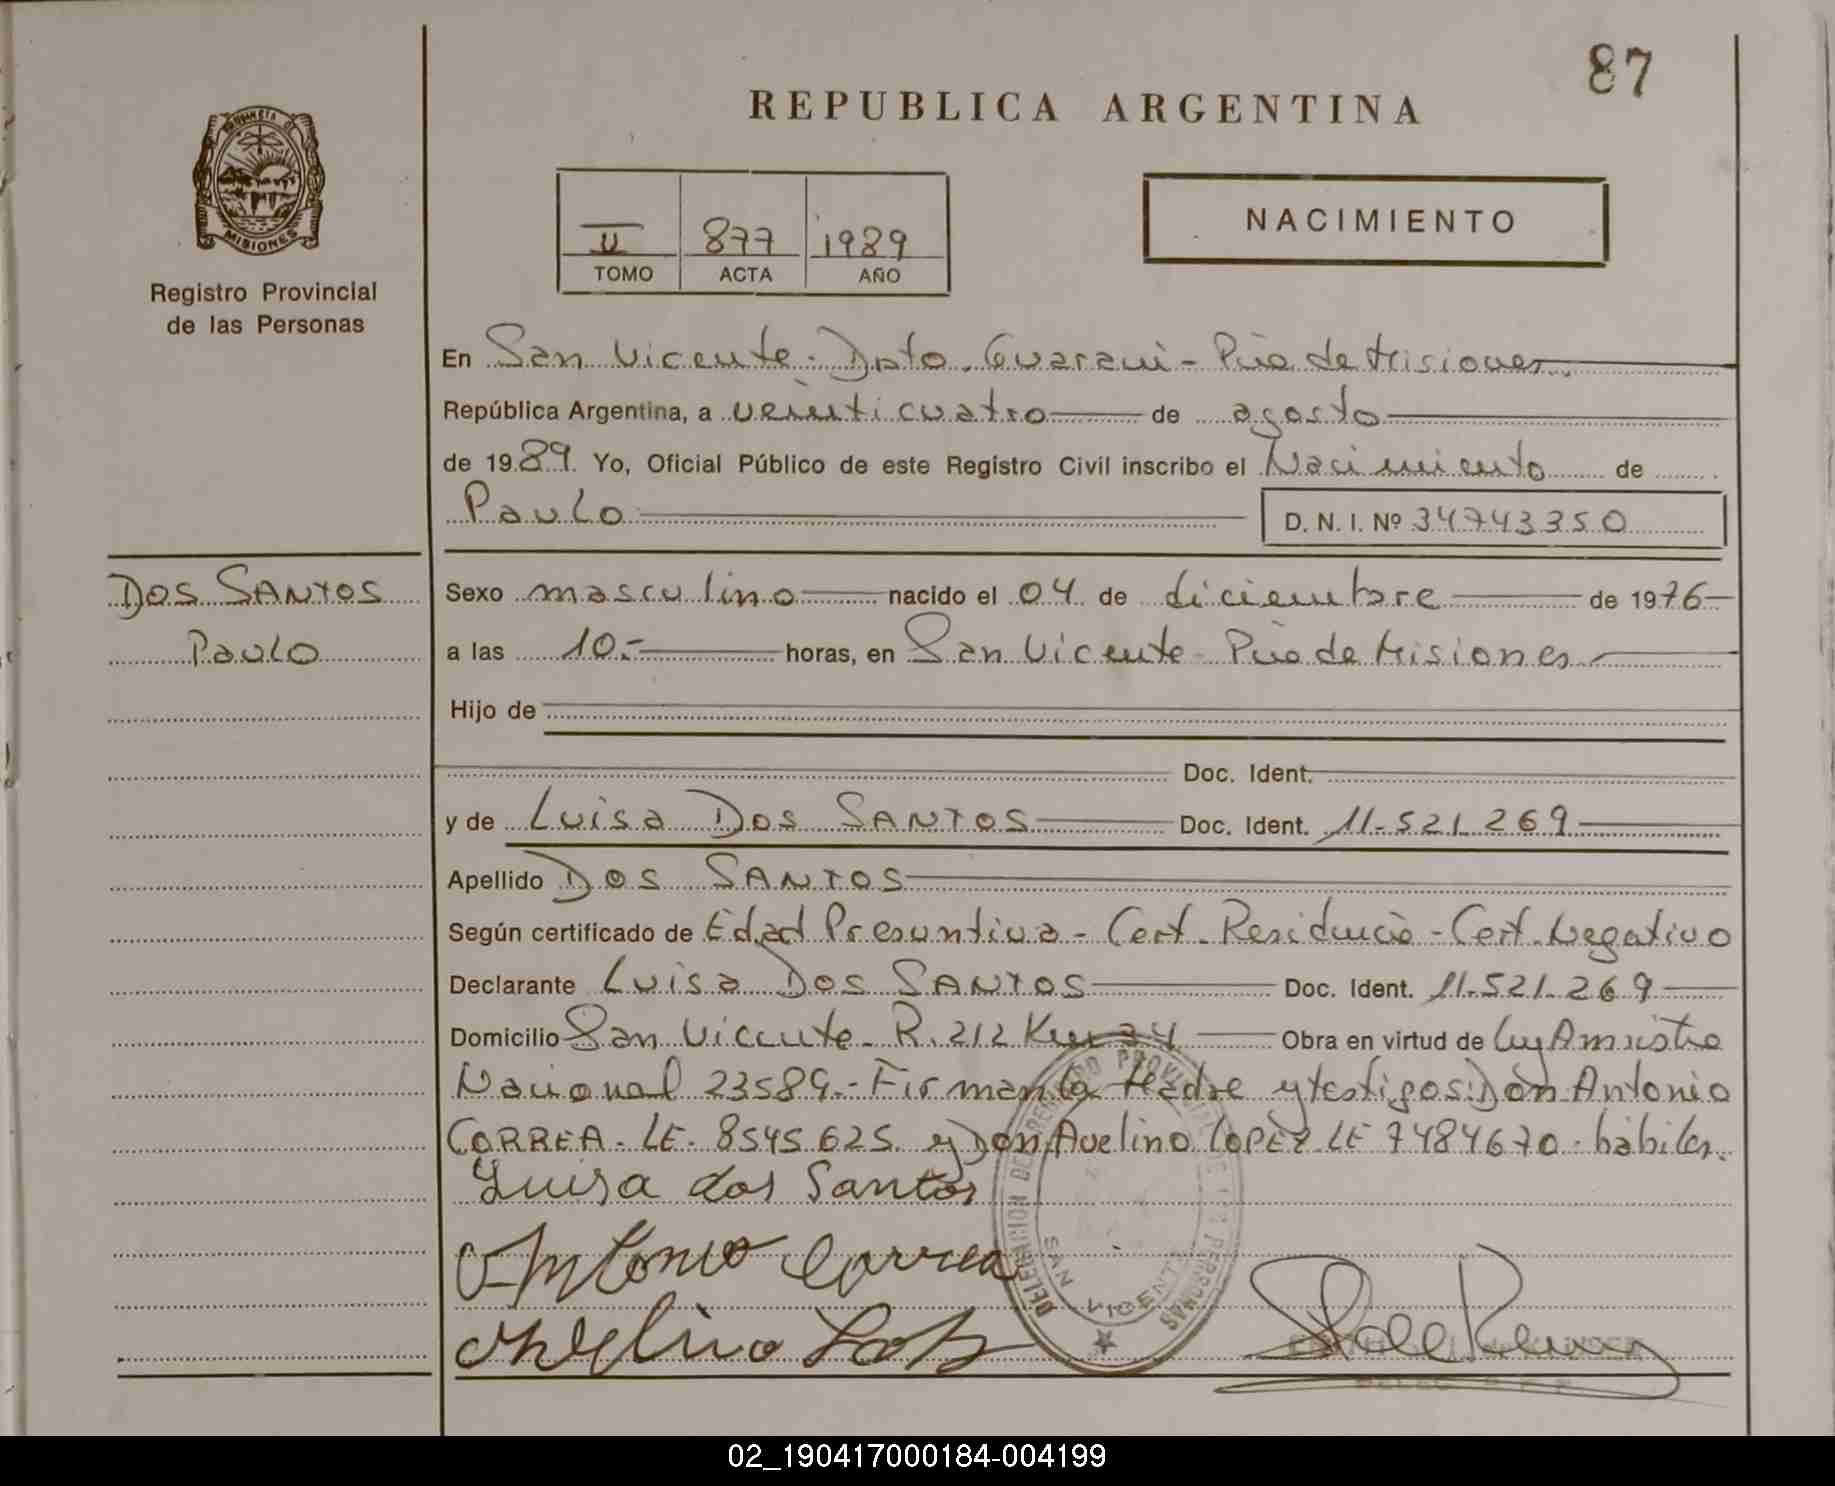 87
REPUBLICA ARGENTINA
MISIONES
Registro Provincial
de las Personas
II 877 1989
TOMO ACTA AÑO
NACIMIENTO
En San Vicente - Dpto. Guarani - Pcia de Misiones
República Argentina, a veinticuatro de agosto
de 1989 Yo, Oficial Público de este Registro Civil inscribo el Nacimiento de
Paulo D. N. I. Nº 34743350
DOS SANTOS
Paulo
Sexo masculino nacido el 04 de diciembre de 1976
a las 10.- horas, en San Vicente - Pcia de Misiones
Hijo de
Doc. Ident.
y de Luisa DOS SANTOS Doc. Ident. 11-521.269
Apellido DOS SANTOS
Según certificado de Edad Presuntiva - Cert. Residencia - Cert. Negativo
Declarante Luisa DOS SANTOS Doc. Ident. 11-521.269
Domicilio San Vicente - R. 212 Km 34 Obra en virtud de Ley Amnistia
Nacional 23589.- Firman la Madre y testigos: Don Antonio
CORREA - LE. 8545625 y Don Avelino LOPEZ LE 7484670 - hábiles.
Luisa dos Santos
Antonio Correa
Avelino
DELEGACION DEL REGISTRO PROVINCIAL DE LAS PERSONAS
SAN VICENTE
02_190417000184-004199